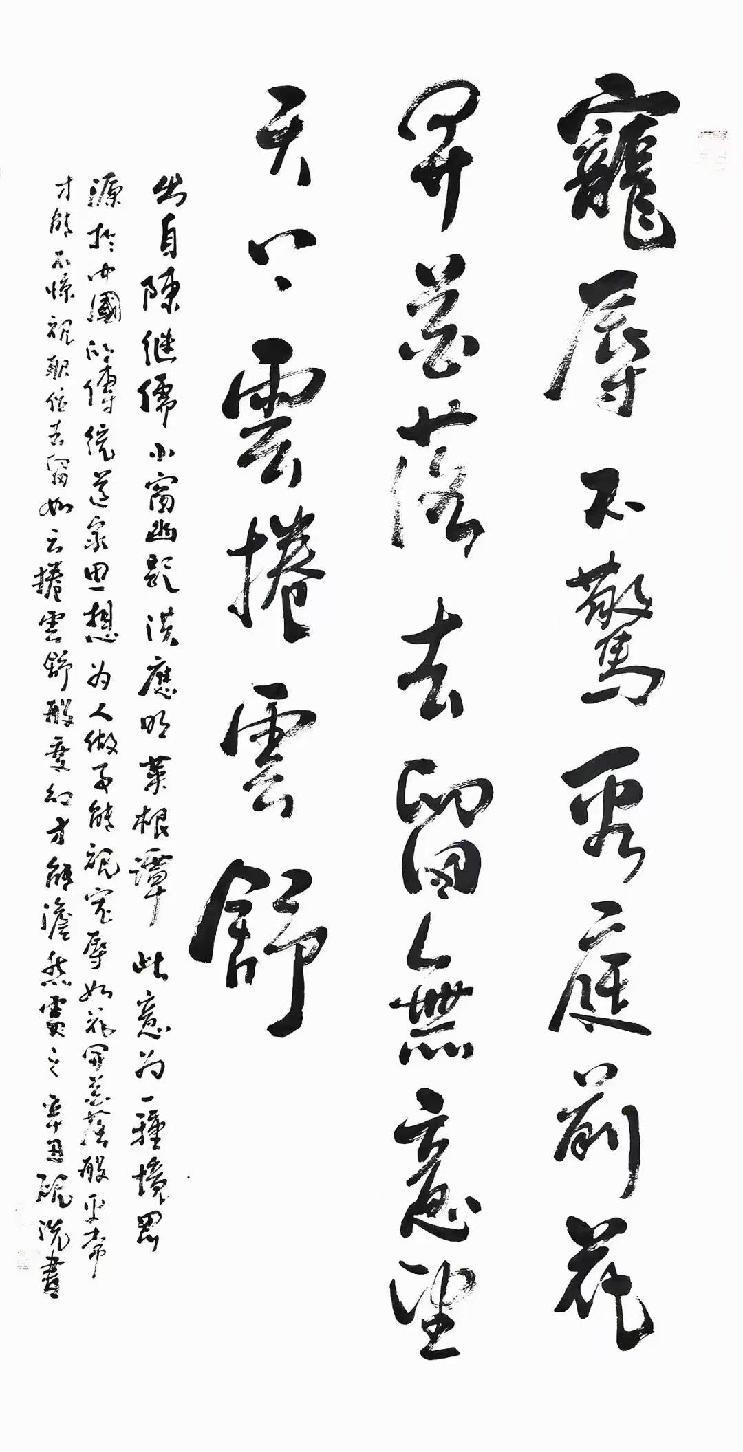 寵辱不驚看庭前花
開花落去留無意望
天上雲捲雲舒
出自陳继儒小窗幽記洪應明菜根譚此意为一種境界
源於中國的傳统道家思想为人做事能視寵辱如花開花落般平常
才能不惊視職位去留如云捲雲舒般变幻才能澹然之辛丑書